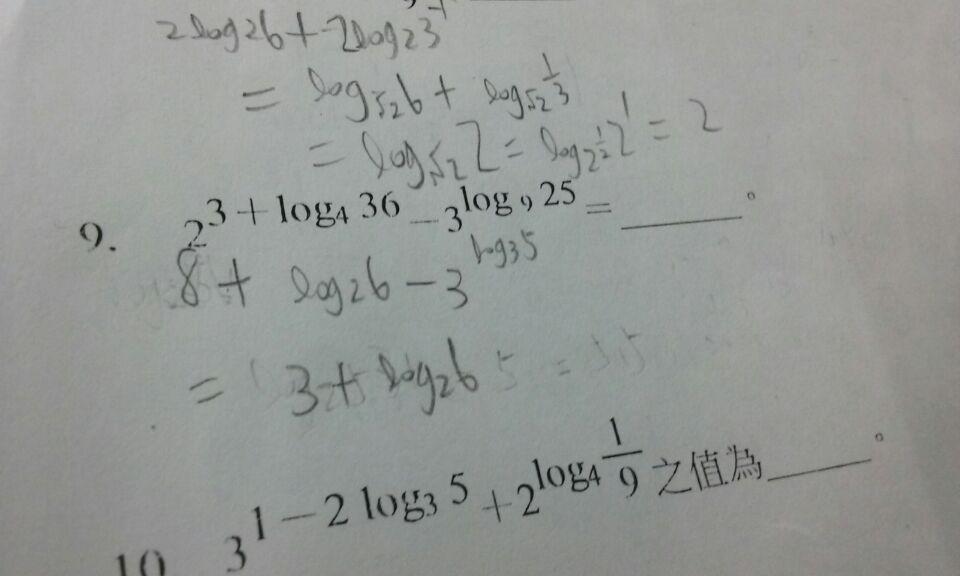 2log26 + 2log23⁻¹
= log√2 6 + log√2 1/3
= log√2 2 = log2^(1/2) 2¹ = 2
9. 2^(3 + log₄ 36) - 3^(log₉ 25) = ______。
8 + log₂6 - 3^(log₃5)
= 3 + log₂6
10. 3^(1 - 2 log₃ 5) + 2^(log₄ 1/9) 之值為______。